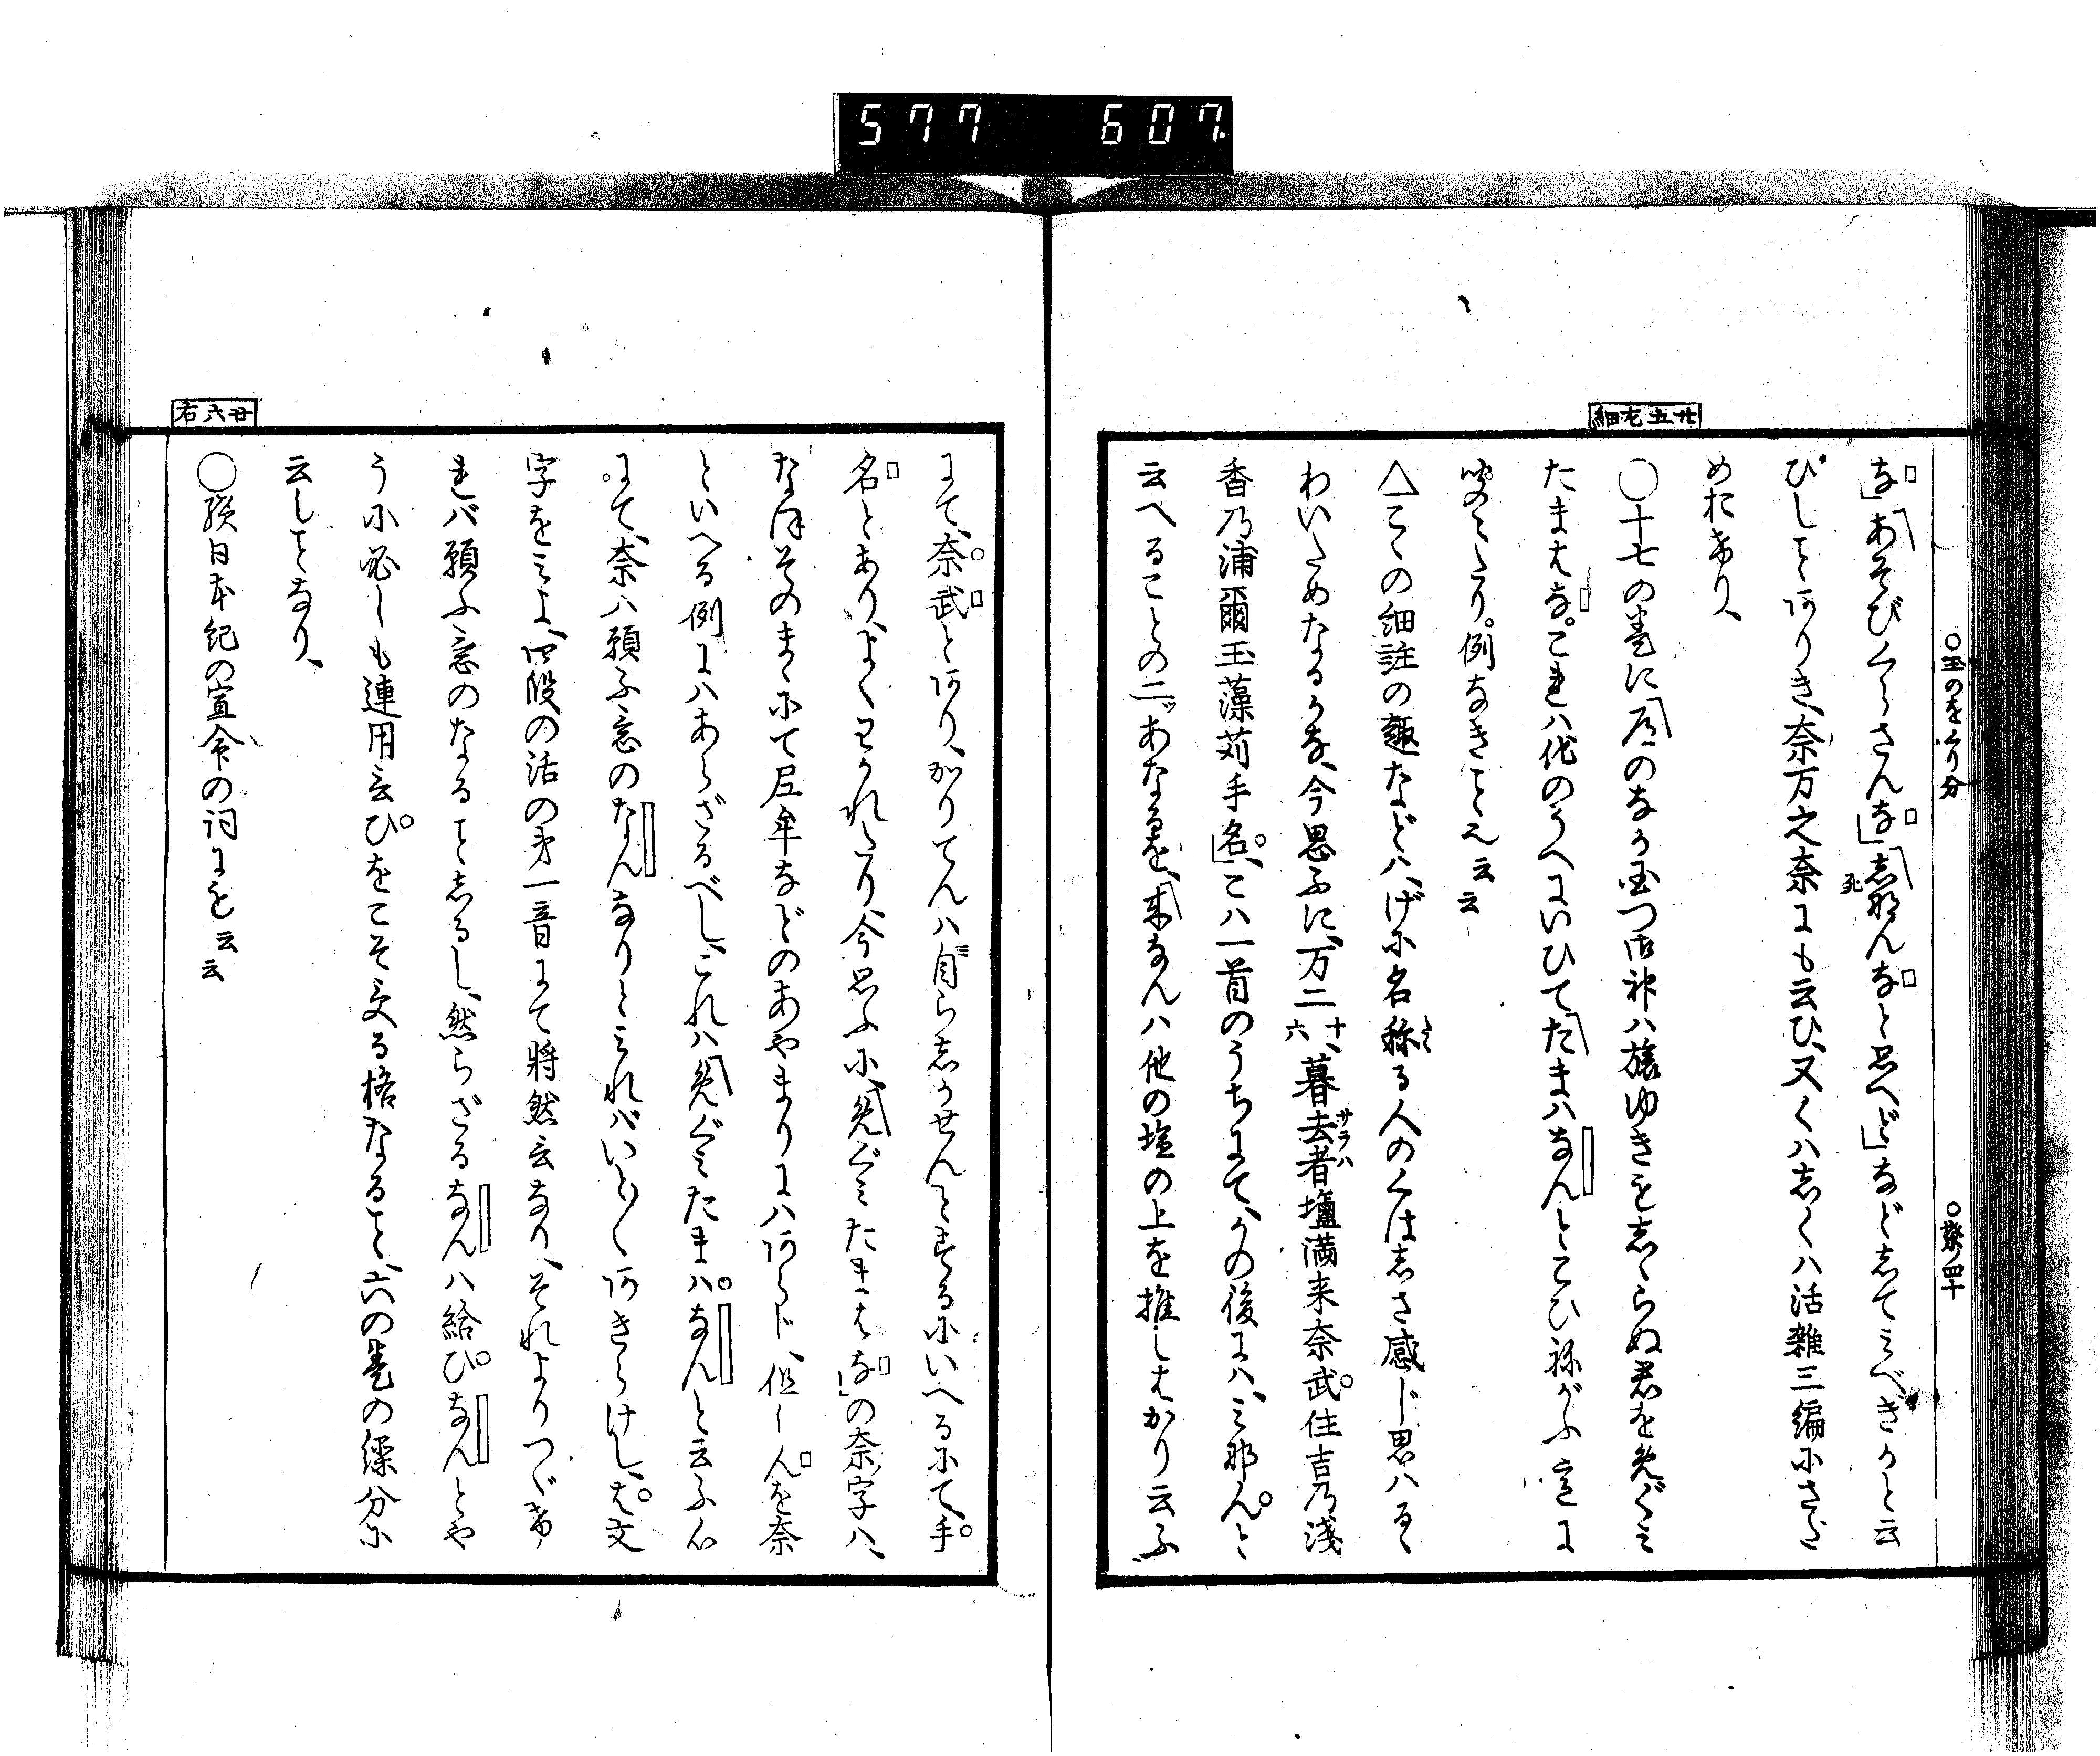 577 607.
○玉のをくり分 ○繁ノ四十
廿五左細
な」あそびくらさんな」志那んなと思へど」などしてみべきかと云
死
びしことありき、奈万之奈にも云ひ、又くはしくハ活雑三編にさだ
めたりき、
○十七の巻に道のなか国つ御神ハ旅ゆきもしらぬ君を免ぐみ
たまはな。これハ他のうへにいひてたまハなんとこひねがふ意に
聞えたり。例なきことぞ云云
△こゝの細註の趣などハ、げに名称る人のくはしさ感じ思ハるゝ
わいためなるかな、今思ふに、万二十六、暮去者塩満来奈武住吉乃浅
サラハ
香乃浦爾玉藻苅手名」、こハ一首のうちにて、かの後にハ、み那んと
云へることの二ッあなるを、来なんハ他の塩の上を推しはかり云ふ
にて、奈武とあり、かりてんハ自らしかせんとするにいへるにて、手
名とあり、よくわかれたり、今思ふに、免ぐみたまはな」の奈字ハ、
なほそのまゝにて尼牟などのあやまりにハあらじ、但しんを奈
といへる例にハあらざるべし、これハ免ぐみたまハなんと云ふ心
にて、奈ハ願ふ意のなんなりとみればいとゝあきらけし、は文
字をみよ、四段の活の第一音にて将然言なり、それよりつゞけ
れバ願ふ意のなることしるし、然らざるなんハ給ひなんとや
うに必しも連用言ひをこそ受る格なること、六の巻の繰分に
云しことなり、
廿六右
○續日本紀の宣命の詞にも云云